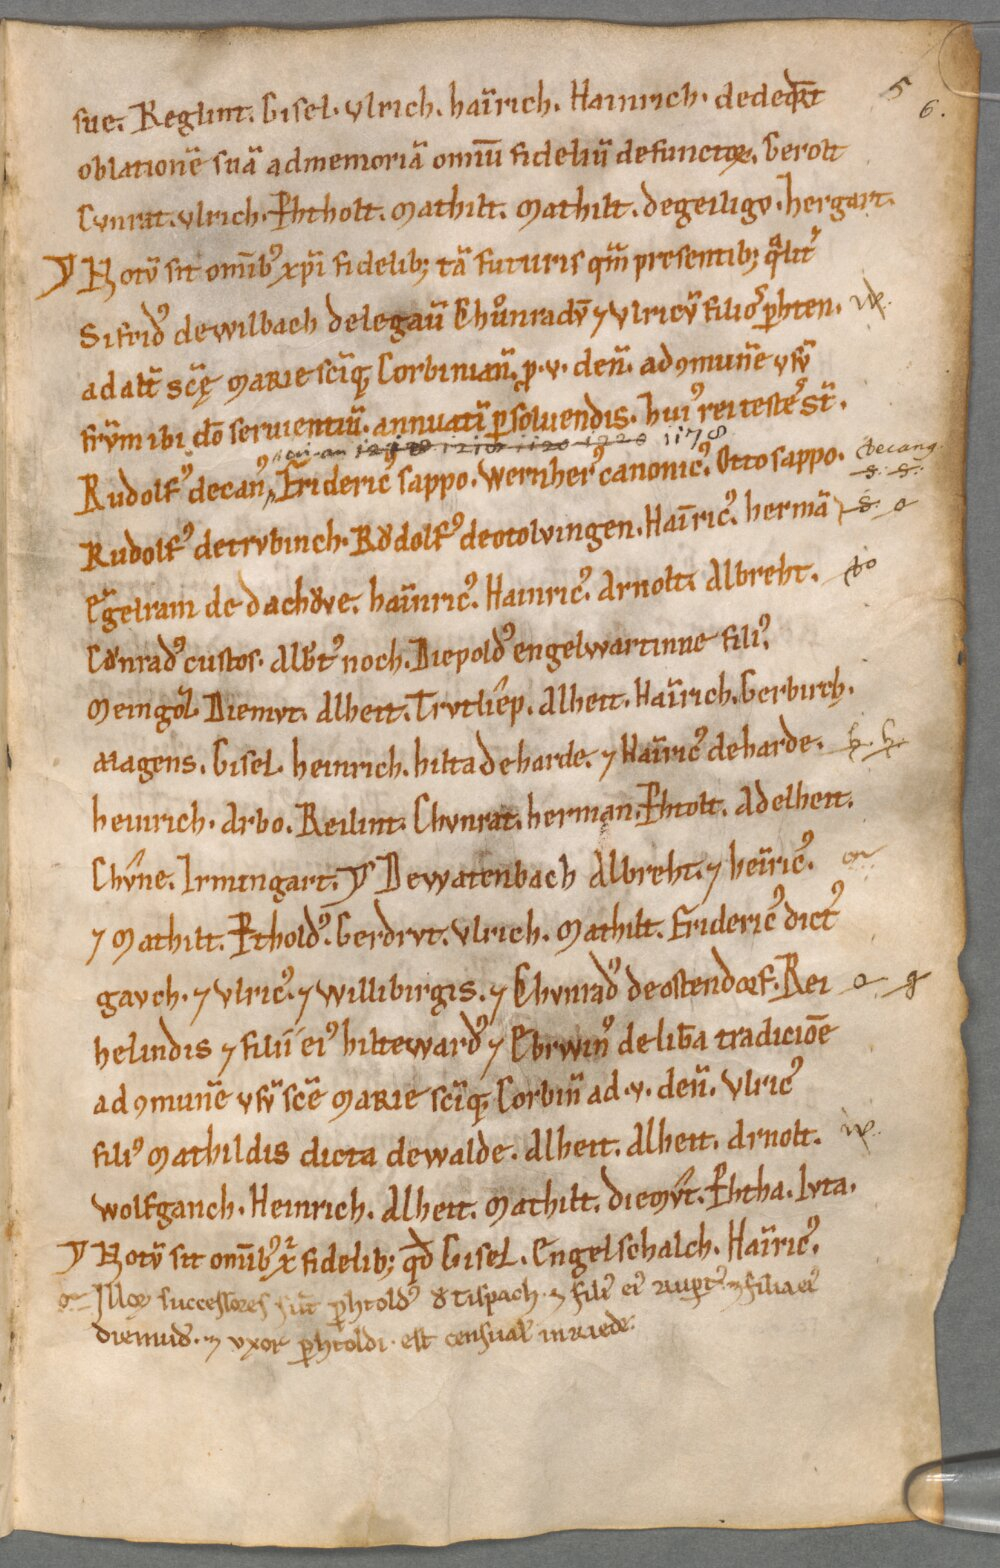 sue. Reglint. Gisel. vlrich. hai̅rich. Hainrich. dedeꝝt
oblatione̅ sua̅ ad memoria̅ omiu̅ fideliu̅ defunctoꝝ. Gerolt
Cvnrat. vlrich. P̲htholt. Mathilt. Mathilt. degeiligv. hergart.
Notu̅ sit omib᷒ xp̅i fidelib; ta̅ futuris qm̅ presentib; qͣlit᷒
Sifrid᷒ de wilbach delegau̅ Chu̐nradv̅ ⁊ vlricv̅ filio᷒ p̲hten.
ad alt̅ sc̅ę MARIE sciq̅; Corbinian̅. p̲ .v. den̅. ad ꝯmune̅ vsv̅
fr̅vm ibi do̅ seruientiu̅. annuati̅ p̲soluendis. hui᷒ rei teste᷒ st̅.
1178
Rudolf᷒ decan᷒, Frideric᷒ sappo. Wernher᷒ canonic᷒. Otto sappo.
Rudolf᷒ detrvbinch. Rudolf᷒ deotolvingen. Hai̅ric᷒. herma̅
Eg̅elram de dachǒve. hai̅nric᷒. Hainric᷒. Arnolt. Albreht.
Cǒnrad᷒ custos. Alb̅t᷒ noch. Diepold᷒ engelwartinne fili᷒.
Meingo̅l. Diemvt. Alheit. Trvtliep. Alheit. Hai̅rich. Gerbirch.
Magens. Gisel. heinrich. hilta deharde. ⁊ Hai̅ric᷒ deharde.
heinrich. Arbo. Reilint. Chvnrat. herman. P̲htolt. Adelheit.
Chv̂ne. Irmingart. Dewatenbach Albreht. ⁊ hei̅ric᷒.
⁊ Mathilt. P̲thold᷒. Gerdrvt. vlrich. Mathilt. Frideric᷒ dict᷒
gavch. ⁊ vlric᷒. ⁊ willibirgis. ⁊ Chvnrad᷒ deostendorf. Rei
helindis ⁊ filii ei᷒ hilteward᷒ ⁊ Ebrwin᷒ delib̅a tradicioe̅
ad ꝯmune̅ vsv̅ sce̅ MARIE sciq̅; Corbin̅ ad .v. den̅. vlric᷒
fili᷒ Mathildis dicta dewalde. Alheit. Alheit. Arnolt.
wolfganch. Heinrich. Alheit. Mathilt. diemv̂t. P̲htha. Ivta.
Notu̅ sit omib᷒ xr̅ fidelib; qd̅ Gisel. Engelschalch. Hai̅ric᷒.
Illoꝝ successores su̅t p̲htold᷒ d̅ tispach. ⁊ fili᷒ ei᷒ rup̲t᷒. ⁊ filia ei᷒
diemud᷒. ⁊ vxor p̲htoldi. est censual᷒ in riede.